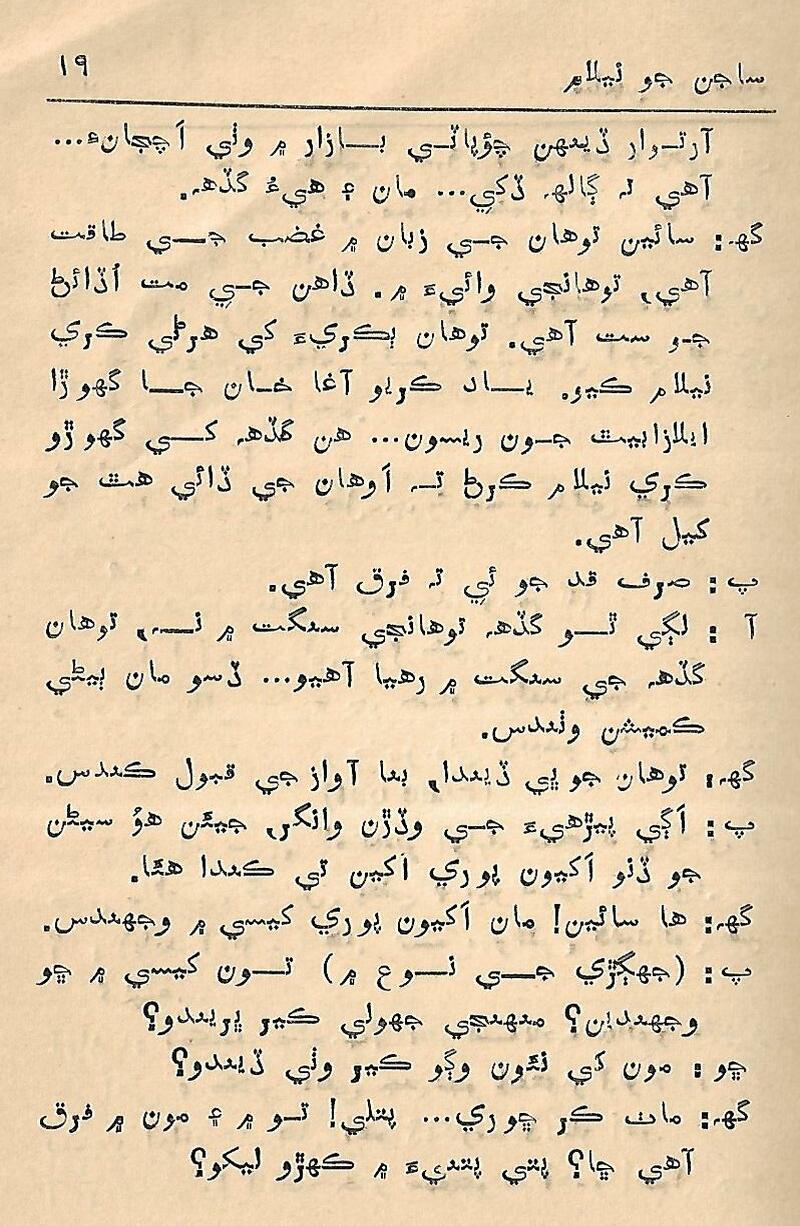 ساجن جو نيلام ١٩
آرتوار ڏينهن چؤپاٽي بازار ۾ وٺي اَچجانءِ...
آهي نه ڳالهه ڏکي... مان ۽ هيءُ گڏهه.
گهہ: سائين توهان جي زبان ۾ غضب جي طاقت
آهي، توهانجي وائيءَ ۾. ڏاهن جي مت اُڏائڻ
جو ست آهي. توهان ٻڪريءَ کي هرڻي ڪري
نيلام ڪيو. ياد ڪريو آغا خان جا گهوڙا
ايلازابيٿ جون ريسون... هن گڏهه کي گهوڙو
ڪري نيلام ڪرڻ تہ اَوهان جي ڏائي هٿ جو
کيل آهي.
پ: صرف قد جو ئي ته فرق آهي.
آ : لڳي ٿو گڏهه توهانجي سنگت ۾ نہ، توهان
گڏهه جي سنگت ۾ رهيا آهيو... ڏسو مان ٻيڻي
ڪميشن وٺندس.
گهہ: توهان جو ڀي ڏيندا، بنا آواز جي قبول ڪندس.
پ: اَڳي پيڙهيءَ جي وڏڙن وانگر، جيئن هوُ سيڻن
جو ڏنو اَکيون پوري اَکين تي ڪندا هئا.
گهہ: ها سائين! مان اَکيون پوري کيسي ۾ وجهندس.
پ: (جهڳڙي جي نوع ۾) تون کيسي ۾ ڇو
وجهندين؟ منهنجي جهولي ڪير ڀريندو؟
ڇو: مون کي نئون وڳو ڪير وٺي ڏيندو؟
گهہ: ماٺ ڪر ڇوري... پتلي! تو ۾ ۽ مون ۾ فرق
آهي ڇا؟ پتي پتنيءَ ۾ ڪهڙو ليکو؟